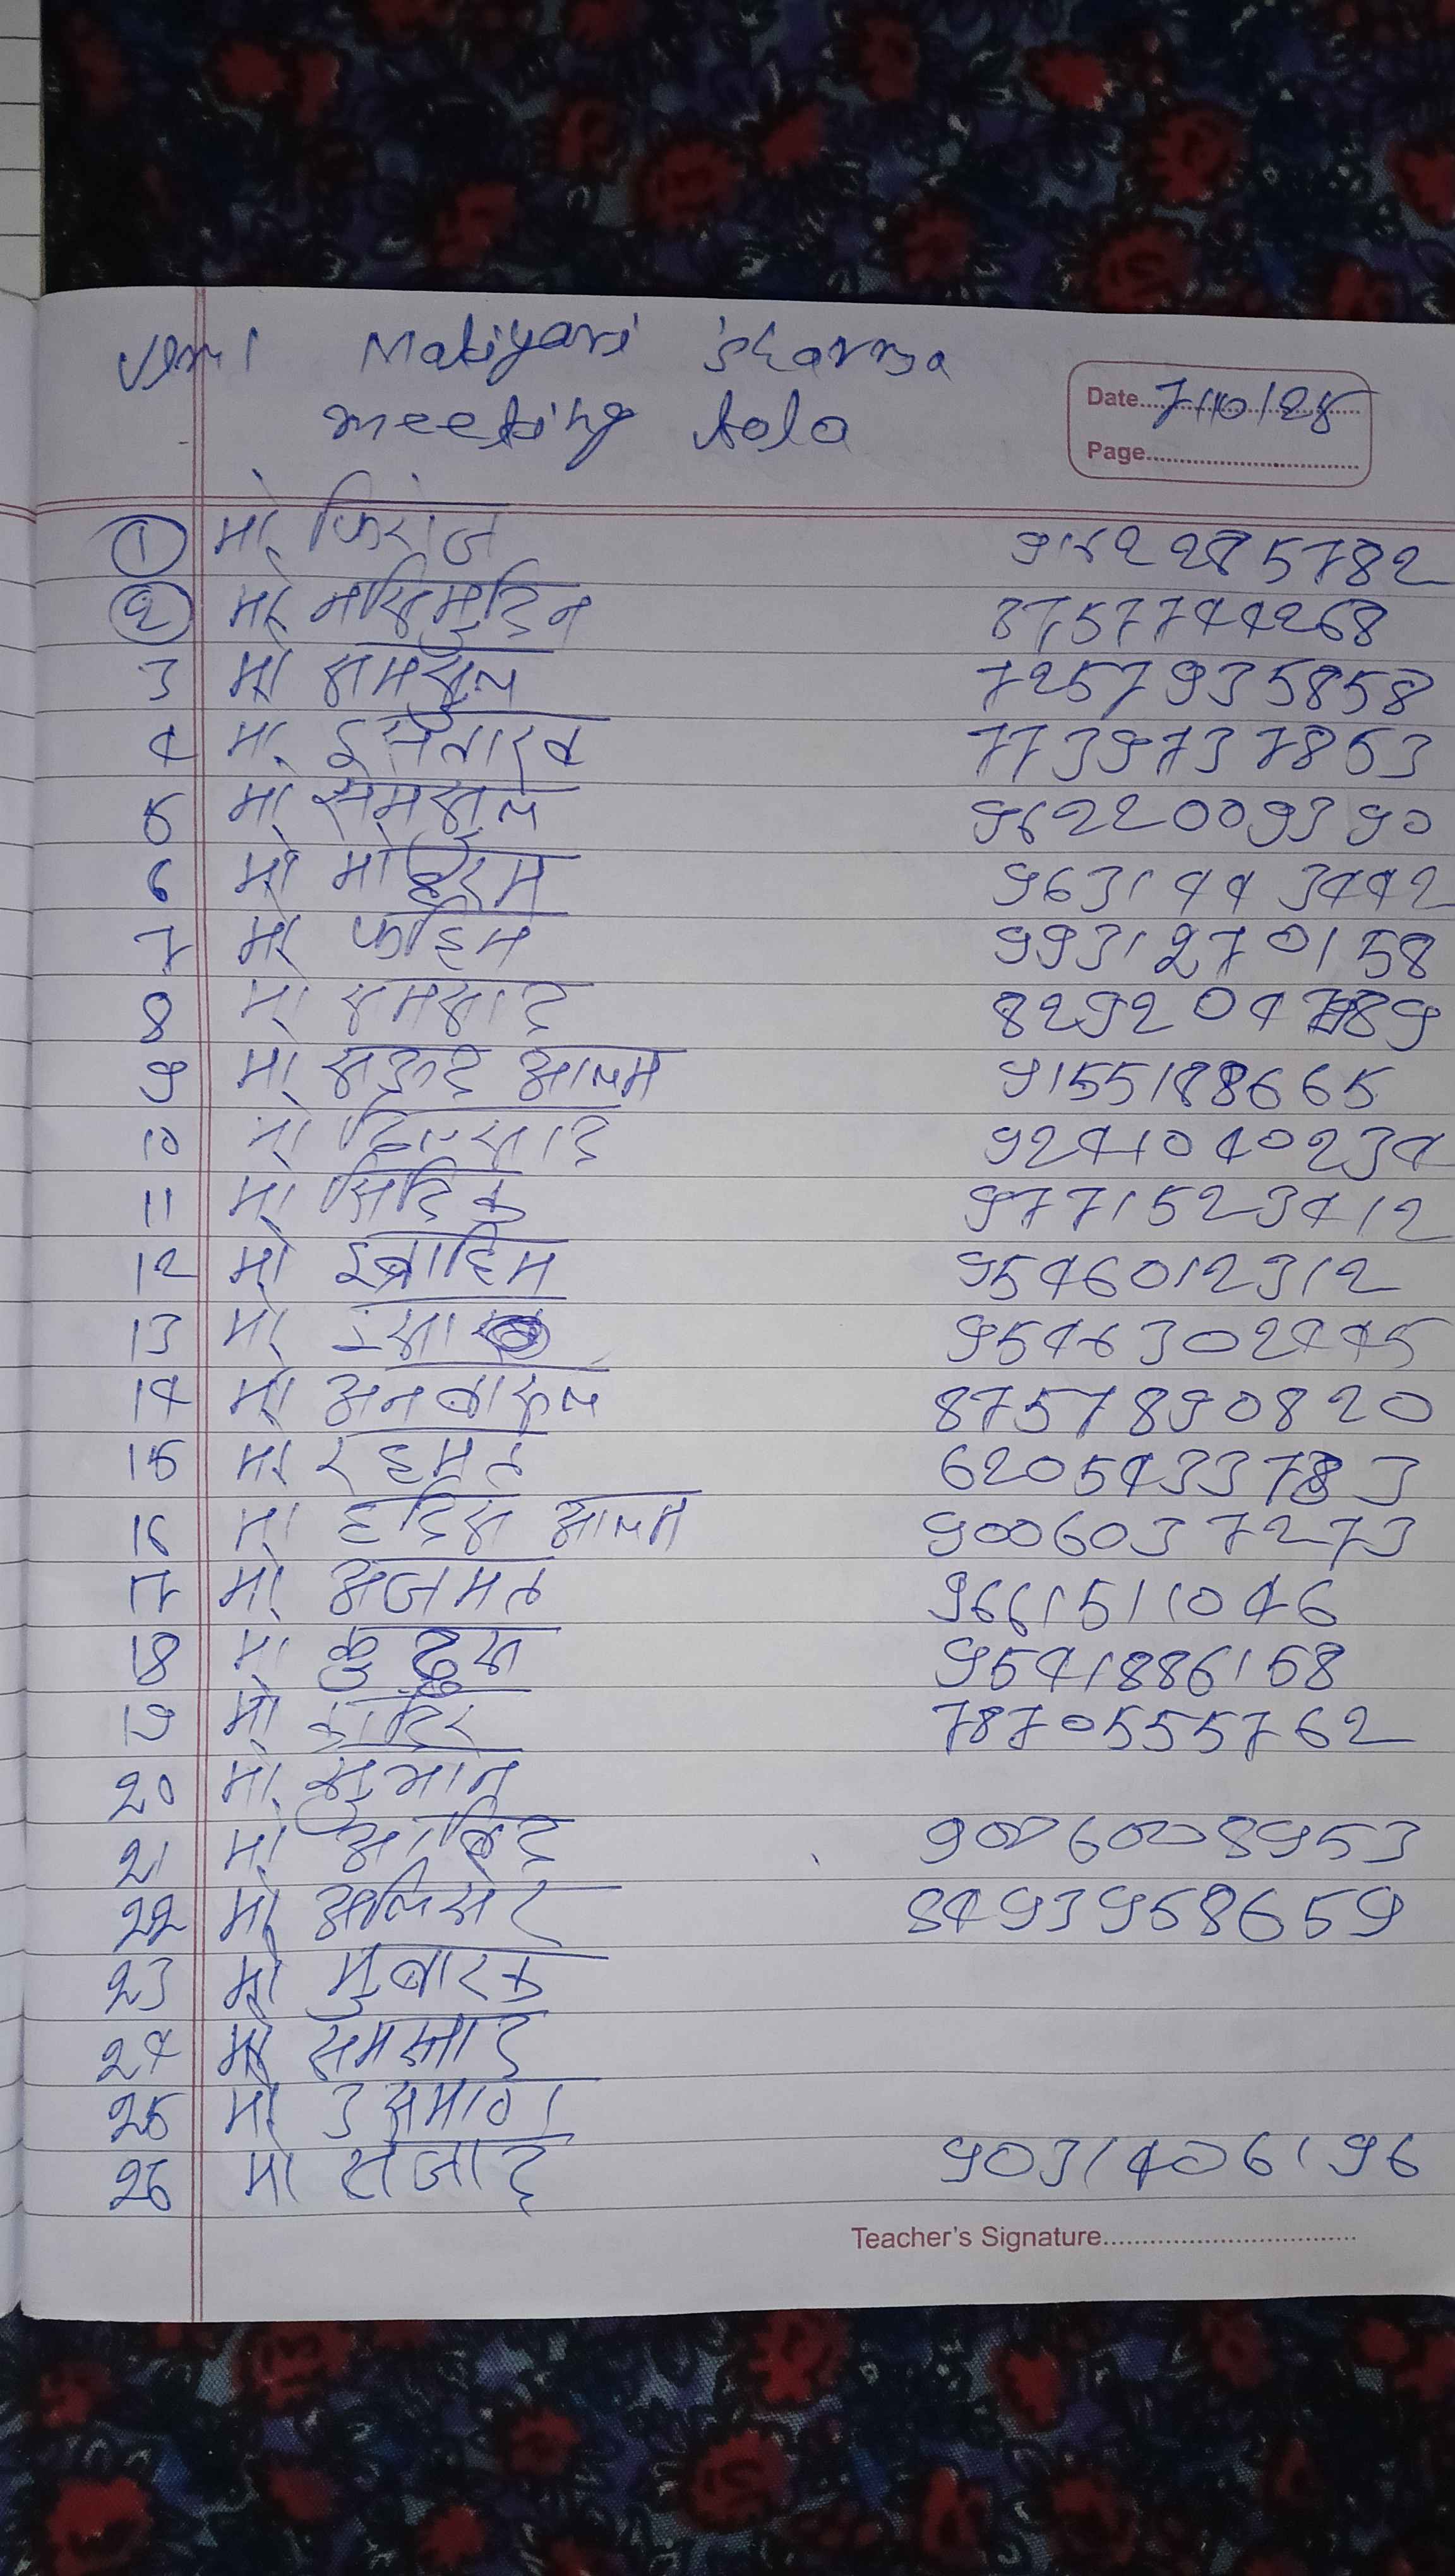 Matiyari Sharma
meeting tola
Date 7/10/25
Page
1 मो. फिरोज 9162285782
2 मो. नसिमुदिन 8757744268
3 मो समसुल 7257935858
4 मो. 7739737853
5 मो 9622009390
6 मो मोहरम 9631443442
7 मो फहिम 9931270158
8 मो समसाद
9 मो आलम 9155188665
10 मो दिलसाद 9241040234
11 मो सिदिक 9771523412
12 मो इब्राहिम 9546012312
13 मो 9546302445
14 मो अनवारूल 8757890820
15 मो रहमत
16 मो आलम 9006037273
17 मो अजमत 9661511046
18 मो 9541886158
19 मो कादिर 7870555762
20 मो.
21 मो 9006008953
22 मो 8493958659
23 मो मुबारक
24 मो समसाद
25 मो
26 मो सजाद 9031406196
Teacher's Signature